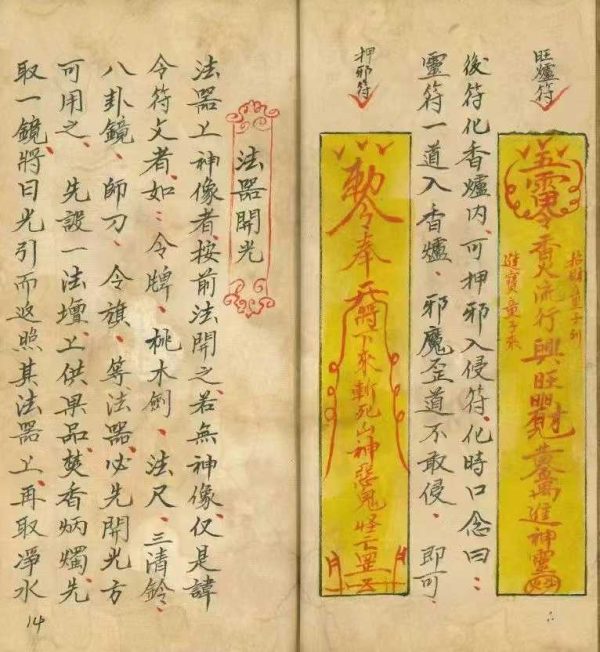 旺爐符
五雷令香火流行興旺進神靈
招財童子到
進寶童子來
後符化香爐內、可押邪入侵符、化時口念曰：
靈符一道入香爐、邪魔歪道不敢侵、即可、
押邪符
勅令奉天將下來斬死山神惡鬼怪亡
法器開光
法器上神像者、按前法開之、若無神像、仅是諱
令符文者、如：令牌、桃木劍、法尺、三清鈴、
八卦鏡、師刀、令旗、等法器、必先開光方
可用之、先設一法壇、上供果品、焚香炳燭、先
取一鏡、將日光引而返照其法器上、再取淨水
14